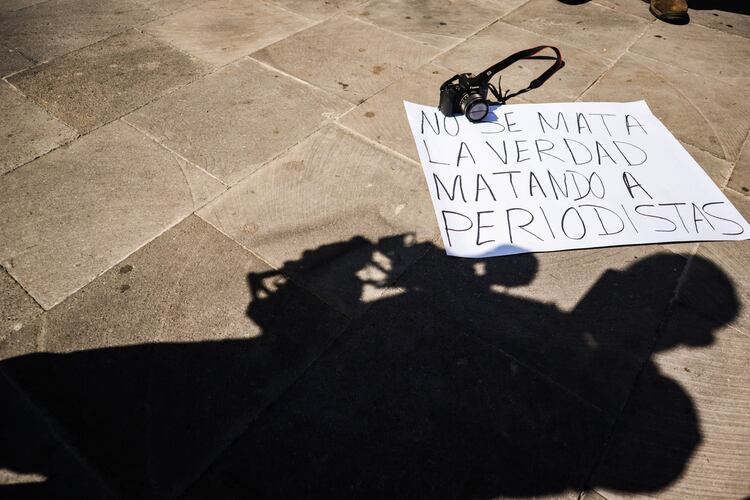 NO SE MATA
LA VERDAD
MATANDO A
PERIODISTAS